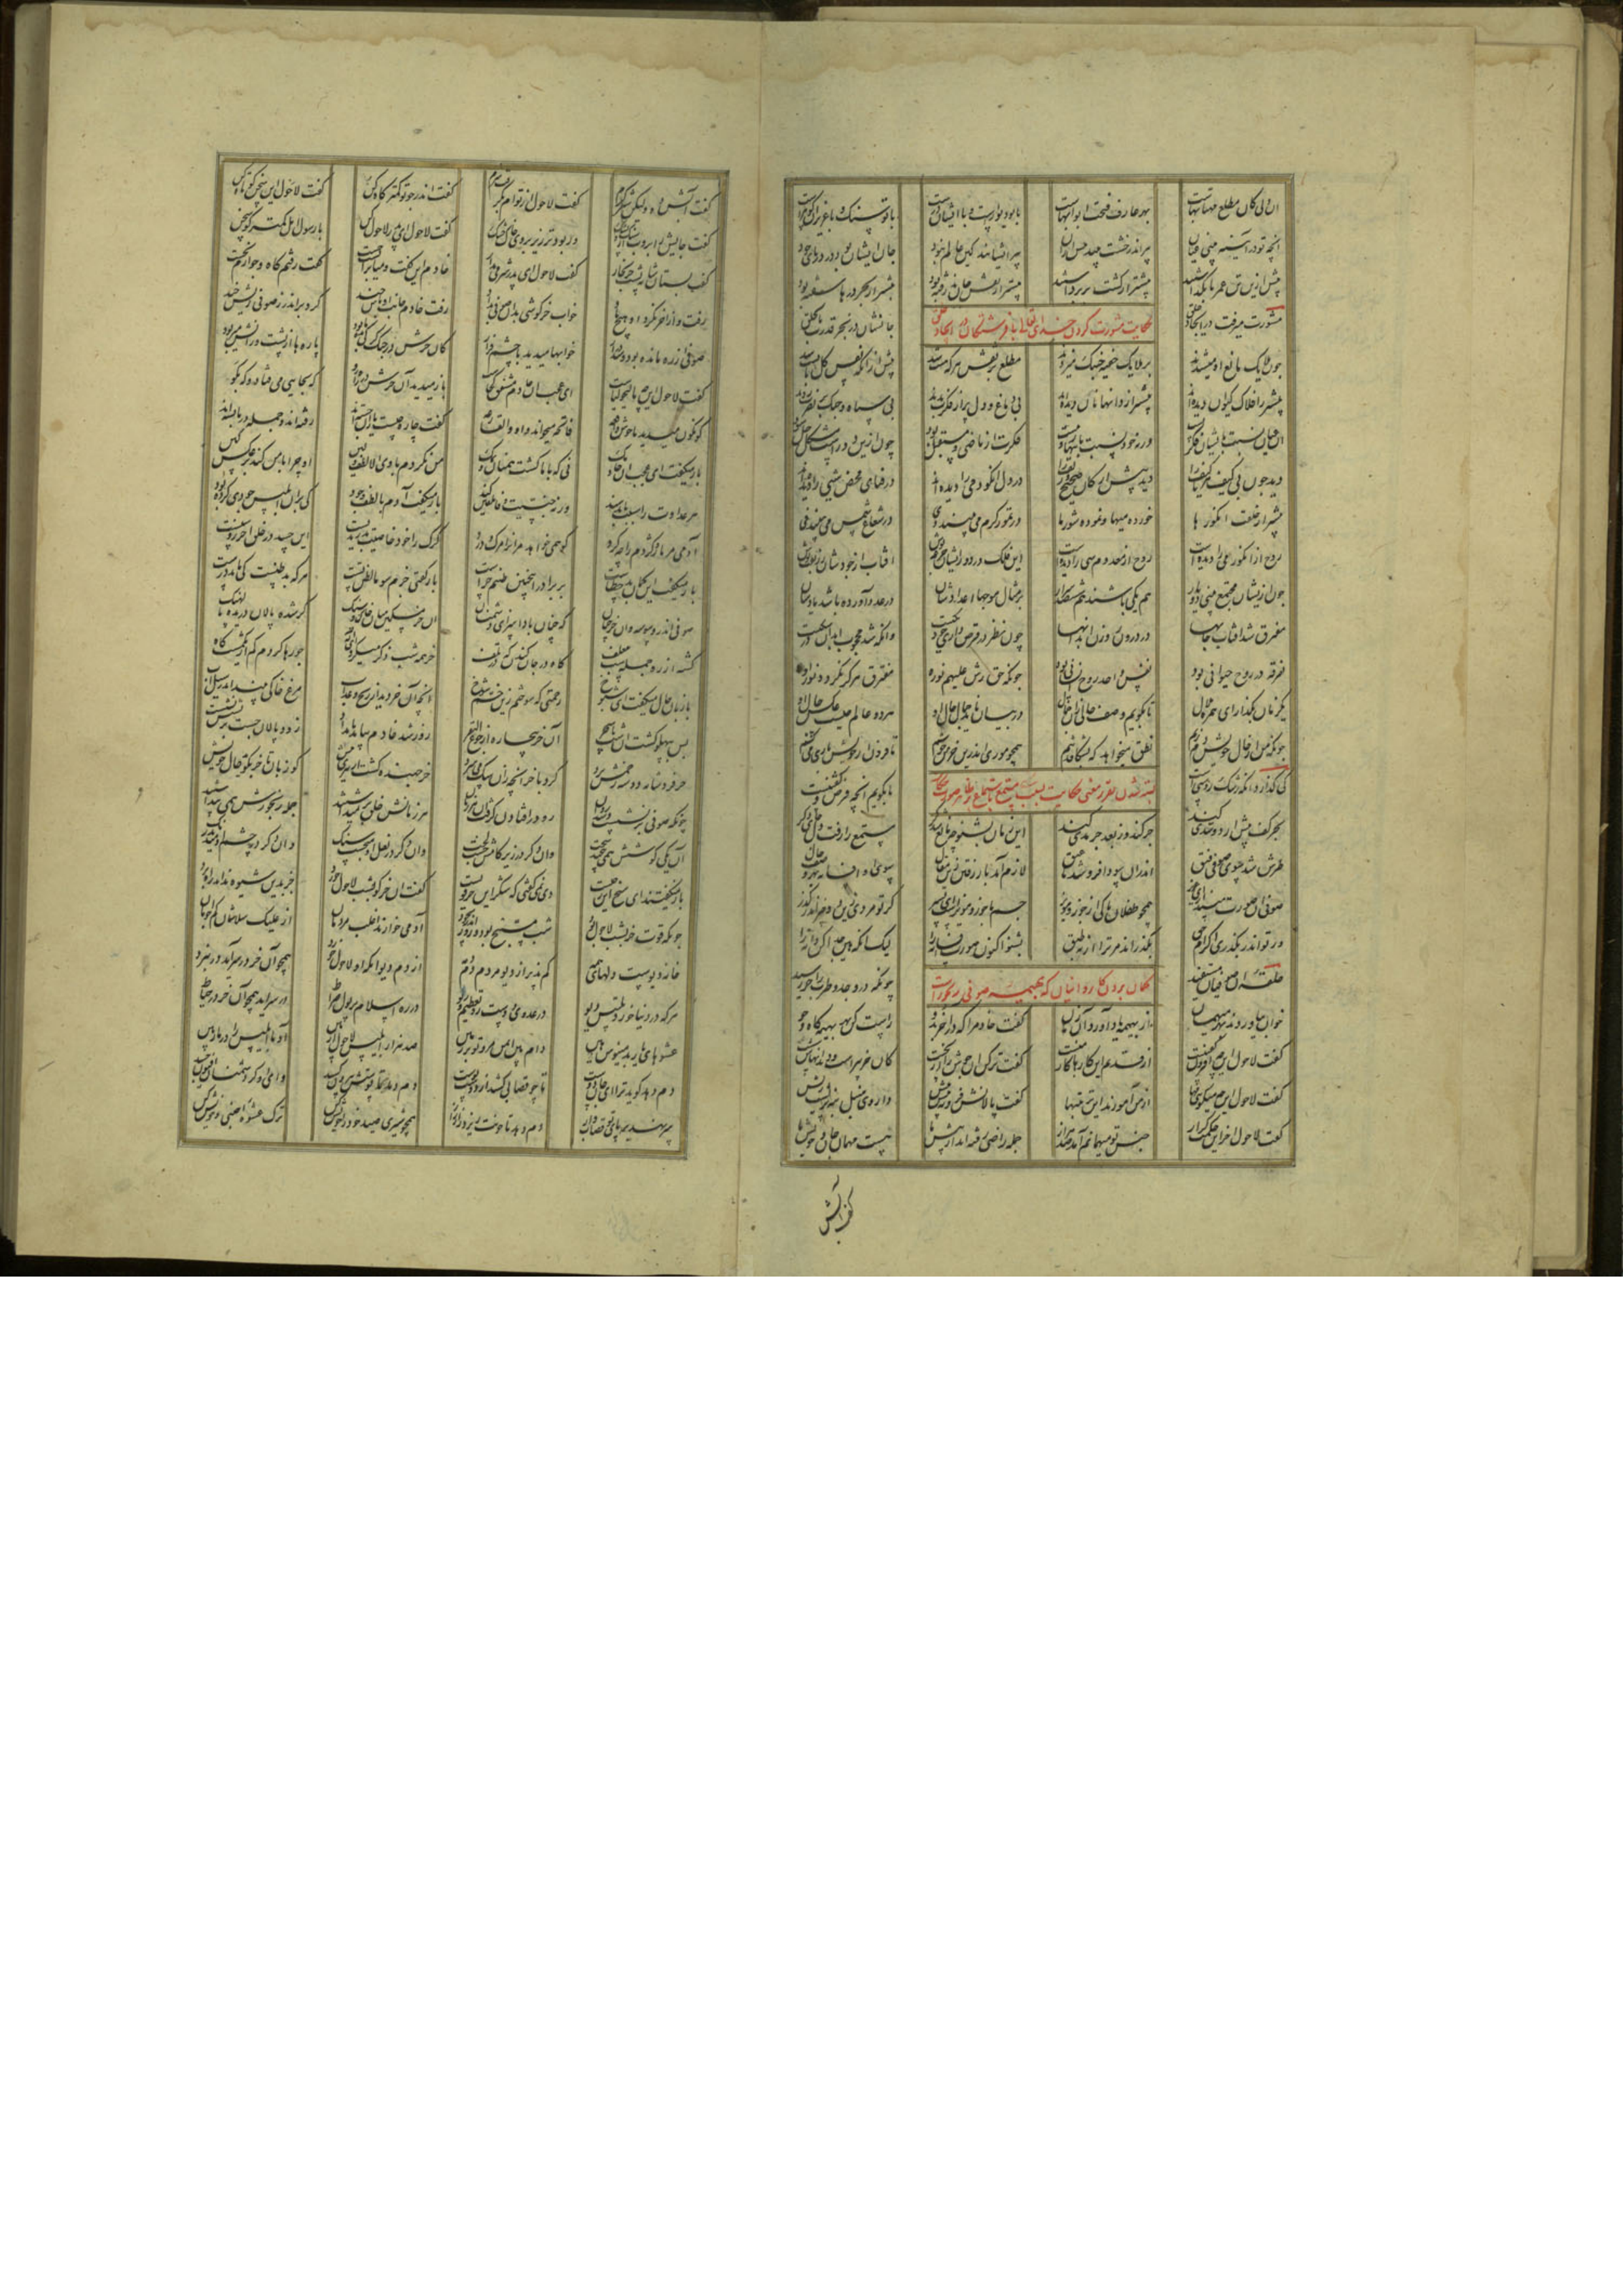 آن دلی کان مطلع مهتابهاست بهر عارف فتحت ابوابهاست با تو دیوارست و با ایشان درست با تو سنگ و با عزیزان گوهرست
آنچه تو در آینه بینی عیان پیر اندر خشت بیند بیش از آن پیر ایشانند کین عالم نبود جان ایشان بود در دریای جود
پیش ازین تن عمرها بگذاشتند پیشتر از کشت بر برداشتند پیشتر از نقش جان پیشتر از بحر درها
مشورت میرفت در ایجاد خلق حکایت مشورت کردن خدای تعالی با فرشتگان در ایجاد خلق جانشان در بحر قدرت تا بحلق
چون ملایک مانع آن میشدند بر ملایک خفیه خنبک میزدند مطلع بر نقش هر که هست شد پیش از آنکه نفس کل پابست شد
پیشتر ز افلاک کیوان دیده اند پیشتر از دانها نان دیده اند بی دماغ و دل پر از فکرت بدند بی سپاه و جنگ بر نصرت زدند
آن عیان نسبت بایشان فکرتست ورنه خود نسبت فکرت از ماضی و مستقبل بود چون ازین دو رست مشکل حل شود
دیده چون بی کیف هر باکیف را دیده پیش از کان صحیح و زیف را در دل انگور می را دیده اند در فنای محض شیی را دیده اند
پیشتر از خلقت انگورها خورده میها و نموده شورها در تموز گرم می بینند دی در شعاع شمس می بینند فی
روح از انگور می را دیده است روح از معدوم شی را دیده است این فلک در دور ایشان جرعه نوش آفتاب از جودشان زربفت پوش
چون ازیشان مجتمع بینی دو یار هم یکی باشند هم ششصد هزار بر مثال موجها اعدادشان در عدد آورده باشد بادشان
مفترق شد آفتاب جانها در درون روزن ابدانها چون نظر در قرص داری خود یکیست وانکه شد محجوب ابدان در شکیست
تفرقه در روح حیوانی بود نفس واحد روح انسانی بود چونکه حق رش علیهم نوره مفترق هرگز نگردد نور او
یکزمان بگذار ای همره ملال تا بگویم وصف خالی زان جمال در بیان ناید جمال حال او هر دو عالم چیست عکس خال او
چونکه من از خال خوبش دم زنم نطق میخواهد که بشکافد تنم همچو موری اندرین خرمن خوشم تا فزون از خویش باری می کشم
کی گذارد آنکه رشک روشنیست بسته شدن تقریر معنی حکایت بسبب میل مستمع باستماع ظاهر صورت حکایت تا بگویم آنچه فرض و گفتنیست
بحر کف پیش آرد و سدی کند جر کند وز بعد جر مدی کند این زمان بشنو چه مانع شد مگر مستمع را رفت دل جای دگر
خاطرش شد سوی صوفی قنق اندران سودا فرو شد تا عنق لازم آمد باز رفتن زین مقال سوی آن افسانه بهر وصف حال
صوفی آن صورت مپندار ای عزیز همچو طفلان تا کی از جوز و مویز جسم ما جوز و مویزست ای پسر گر تو مردی زین دو چیز اندر گذر
ور تو اندر نگذری اکرام حق بگذراند مر ترا از نه طبق بشنو اکنون صورت افسانه را لیک هین از که جدا کن دانه را
حلقه آن صوفیان مستفید گمان بردن کاروانیان که بهیمه صوفی رنجورست چونکه در وجد و طرب آخر رسید
خوان بیاوردند بهر میهمان از بهیمه یاد آورد آن زمان گفت خادم را که در آخر برو راست کن بهر بهیمه کاه و جو
گفت لاحول این چه افزون گفتنست از قدیم این کارها کار منست گفت تر کن آن جوش را از نخست کان خر پیرست و دندانهاش سست
گفت لاحول این چه میگویی مها از من آموزند این ترتیبها گفت پالانش فرو نه پیش پیش داروی منبل بنه بر پشت ریش
گفت لاحول آخر ای حکمت گزار جنس تو مهمانم آمد صد هزار جمله راضی رفته اند از پیش ما هست مهمان جان ما و خویش ما
گفت آبش
گفت آبش ده ولیکن شیر گرم گفت لاحول از توام بگرفت شرم گفت اندر جو تو کمتر کاه کن گفت لاحول این سخن کوتاه کن
گفت جایش را بروب از سنگ و پشک ور بود تر ریز بر وی خاک خشک گفت لاحول ای پدر لاحول کن با رسول اهل کمتر گو سخن
گفت بستان شانه پشت خر بخار گفت لاحول ای پدر شرمی بدار خادم این گفت و میان را بست چست گفت رفتم کاه و جو آرم نخست
رفت و از آخر نکرد او هیچ یاد خواب خرگوشی بدان صوفی بداد رفت خادم جانب اوباش چند کرد بر اندرز صوفی ریش خند
صوفی از ره مانده بود و شد دراز خوابها میدید با چشم فراز کان خرش در چنگ گرگی مانده بود پاره ها از پشت و رانش میربود
گفت لاحول این چه مالیخولیاست ای عجب آن خادم مشفق کجاست باز میدید آن خرش در راه رو گه بچاهی می فتاد و گه بگو
گونگون میدید ناخوش واقعه فاتحه میخواند او والقارعه گفت چاره چیست یاران جسته اند رفته اند و جمله درها بسته اند
باز میگفت ای عجب آن خادمک نی که با ما گشت همنان و نمک من نکردم با وی الا لطف و لین او چرا با من کند بر عکس کین
هر عداوت را سبب باید سند ورنه جنسیت وفا تلقین کند باز میگفت آدم با لطف و جود کی بر آن ابلیس جوری کرده بود
آدمی مر مار و کژدم را چه کرد کو همی خواهد مر او را مرگ و درد گرگ را خود خاصیت بدریدنست این حسد در خلق آخر روشنست
باز میگفت این گمان بد خطاست بر برادر اینچنین ظنم چراست باز گفتی حزم سوء الظن تست هر که بدظن نیست کی ماند درست
صوفی اندر وسوسه وان خر چنان که چنان بادا سزای دشمنان آن خر مسکین میان خاک و سنگ کژ شده پالان دریده پالهنگ
کشته از ره جمله شب بی علف گاه در جان کندن و گه در تلف خر همه شب ذکر میکرد ای اله جو رها کردم کم از یک مشت کاه
با زبان حال میگفت ای شیوخ رحمتی که سوختم زین خام شوخ آنچه آن خر دید از رنج و عذاب مرغ خاکی بیند اندر سیل آب
بس بپهلو گشت آن شب تا سحر آن خر بیچاره از جوع البقر روز شد خادم بیامد بامداد زود پالان جست بر پشتش نهاد
خر فروشانه دو سه زخمش بزد کرد با خر آنچه زان سگ می سزد خر جهنده گشت از تیزی نیش کو زبان تا خر بگوید حال خویش
چونکه صوفی بر نشست و شد روان رو در افتادن گرفت او هر زمان هر زمانش خلق بر میداشتند جمله رنجورش همی پنداشتند
آن یکی گوشش همی پیچید سخت وان دگر در زیر کامش جست لخت وان دگر در نعل او می جست سنگ وان دگر در چشم او میدید زنگ
باز میگفتند ای شیخ این ز چیست دی نمی گفتی که شکر این خر قویست گفت آن خر کو بشب لاحول خورد جز بدین شیوه نداند راه کرد
چونکه قوت خر بشب لاحول بود شب مسبح بود و روز اندر سجود آدمی خوارند اغلب مردمان از علیک سلامشان کم جو امان
خانه دیوست دلهای همه کم پذیر از دیو مردم دمدمه از دم دیو آنکه او لاحول خورد همچو آن خر در سر آید در نبرد
هر که در دنیا خورد تلبیس دیو وز عدوی دوست رو تعظیم و ریو در ره اسلام و بر پول صراط در سر آید همچو آن خر
عشوهای یار بد منیوش هین دام بین ایمن مرو تو بر زمین صد هزار ابلیس لاحول آر بین آدما ابلیس را در مار بین
دم دهد گوید ترا ای جان و دوست تا چو قصابی کشد از دوست پوست دم دهد تا پوستت بیرون کشد وای او کز دشمنان افیون چشد
سر نهد بر پای تو قصاب وار دم دهد تا خونت ریزد زار زار همچو شیری صید خود را خویش کن ترک عشوه اجنبی و خویش کن